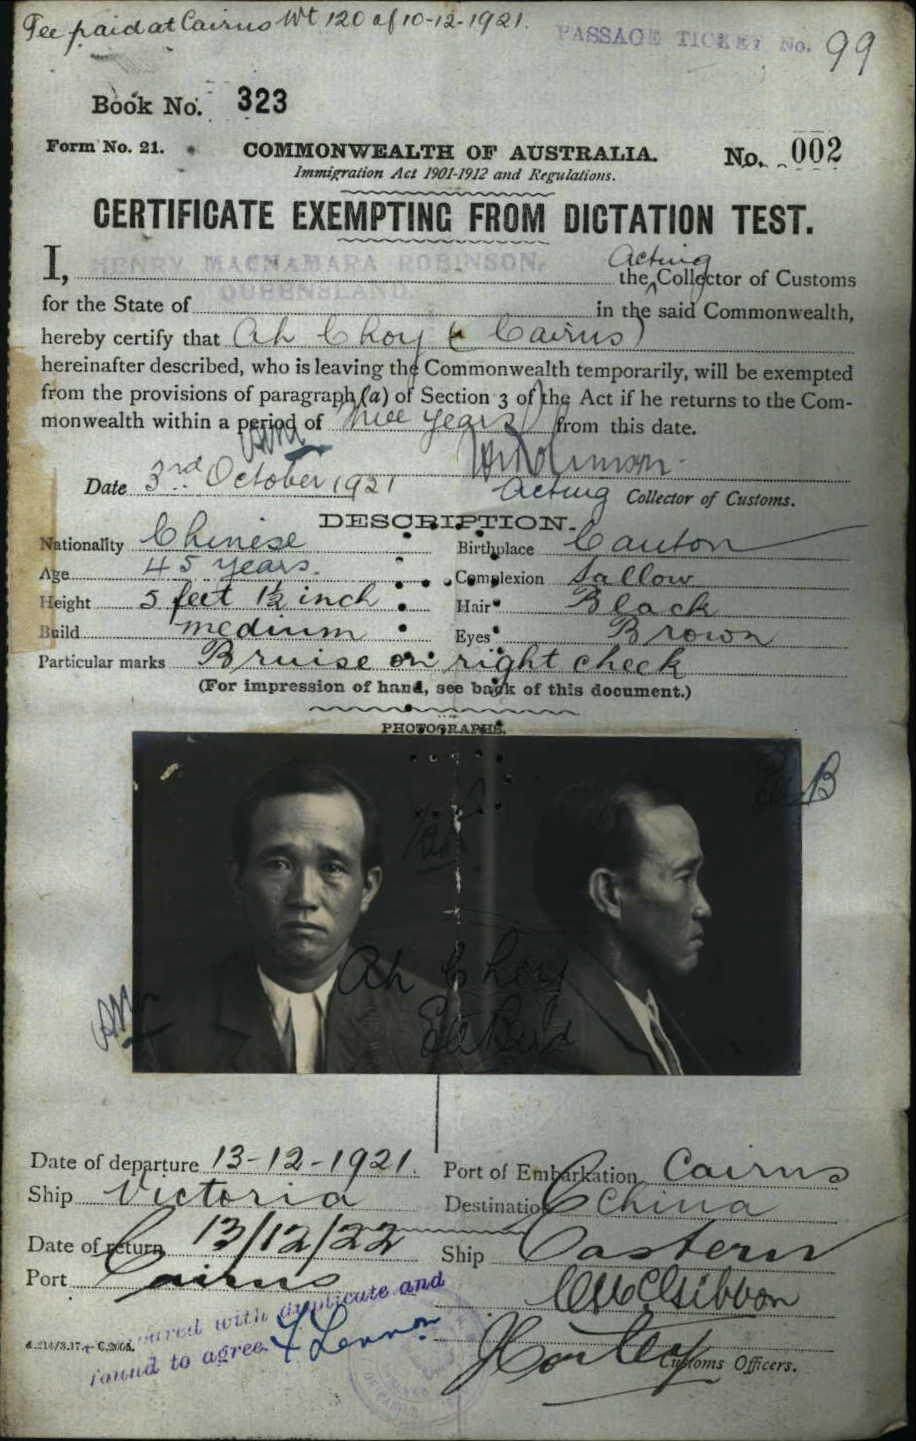 Fee paid at Cairns Wt 120 of 10-12-1921.
PASSAGE TICKET No. 99
Book No. 323
Form No. 21. COMMONWEALTH OF AUSTRALIA. No. 002
Immigration Act 1901-1912 and Regulations.
CERTIFICATE EXEMPTING FROM DICTATION TEST.
I, HENRY MACNAMARA ROBINSON, the Acting Collector of Customs
for the State of QUEENSLAND. in the said Commonwealth,
hereby certify that Ah Choy (Cairns)
hereinafter described, who is leaving the Commonwealth temporarily, will be exempted
from the provisions of paragraph (a) of Section 3 of the Act if he returns to the Com-
monwealth within a period of three years from this date.
Date 3rd October 1921
Acting Collector of Customs.
DESCRIPTION.
Nationality Chinese Birthplace Canton
Age 45 years. Complexion Sallow
Height 5 feet 1½ inch Hair Black
Build medium Eyes Brown
Particular marks Bruise on right cheek
(For impression of hand, see back of this document.)
PHOTOGRAPHS.
Ah Choy
Date of departure 13-12-1921. Port of Embarkation Cairns
Ship Victoria Destination China
Date of return 13/12/22 Ship Eastern
Port Cairns
duplicate and
found to agree. Lennon
Customs Officers.